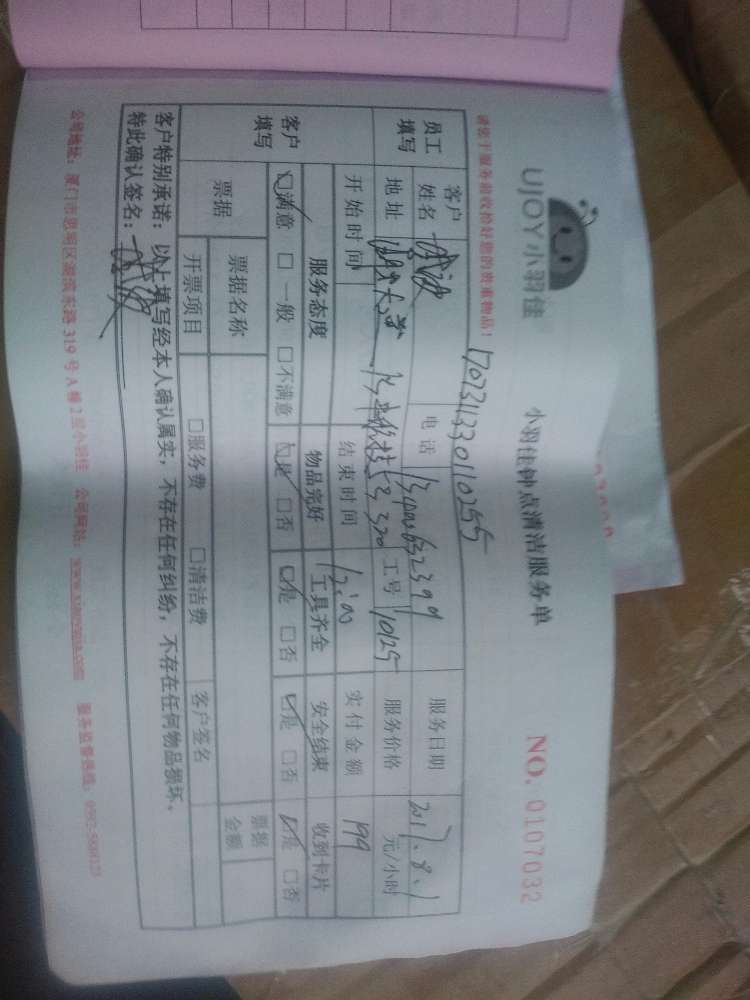 UJOY小羽佳
小羽佳钟点清洁服务单
NO. 0107032
请于服务前收拾好您的贵重物品!
170731330110255
员工填写
客户姓名
电话
服务日期 2017.8.1
地址
工号 10125
服务价格 元/小时
客户填写
开始时间
结束时间 12:00
实付金额 199
服务态度 物品完好 工具齐全 安全结束 收到卡片
☑满意 □一般 □不满意 ☑是 □否 ☑是 □否 ☑是 □否 ☑是 □否
票据
票据名称
票据金额
开票项目 □服务费 □清洁费 客户签名
客户特别承诺:以上填写经本人确认属实,不存在任何纠纷,不存在任何物品损坏。
特此确认签名:
公司地址:厦门市思明区湖滨东路319号A幢2层小羽佳 公司网站: 服务监督热线: